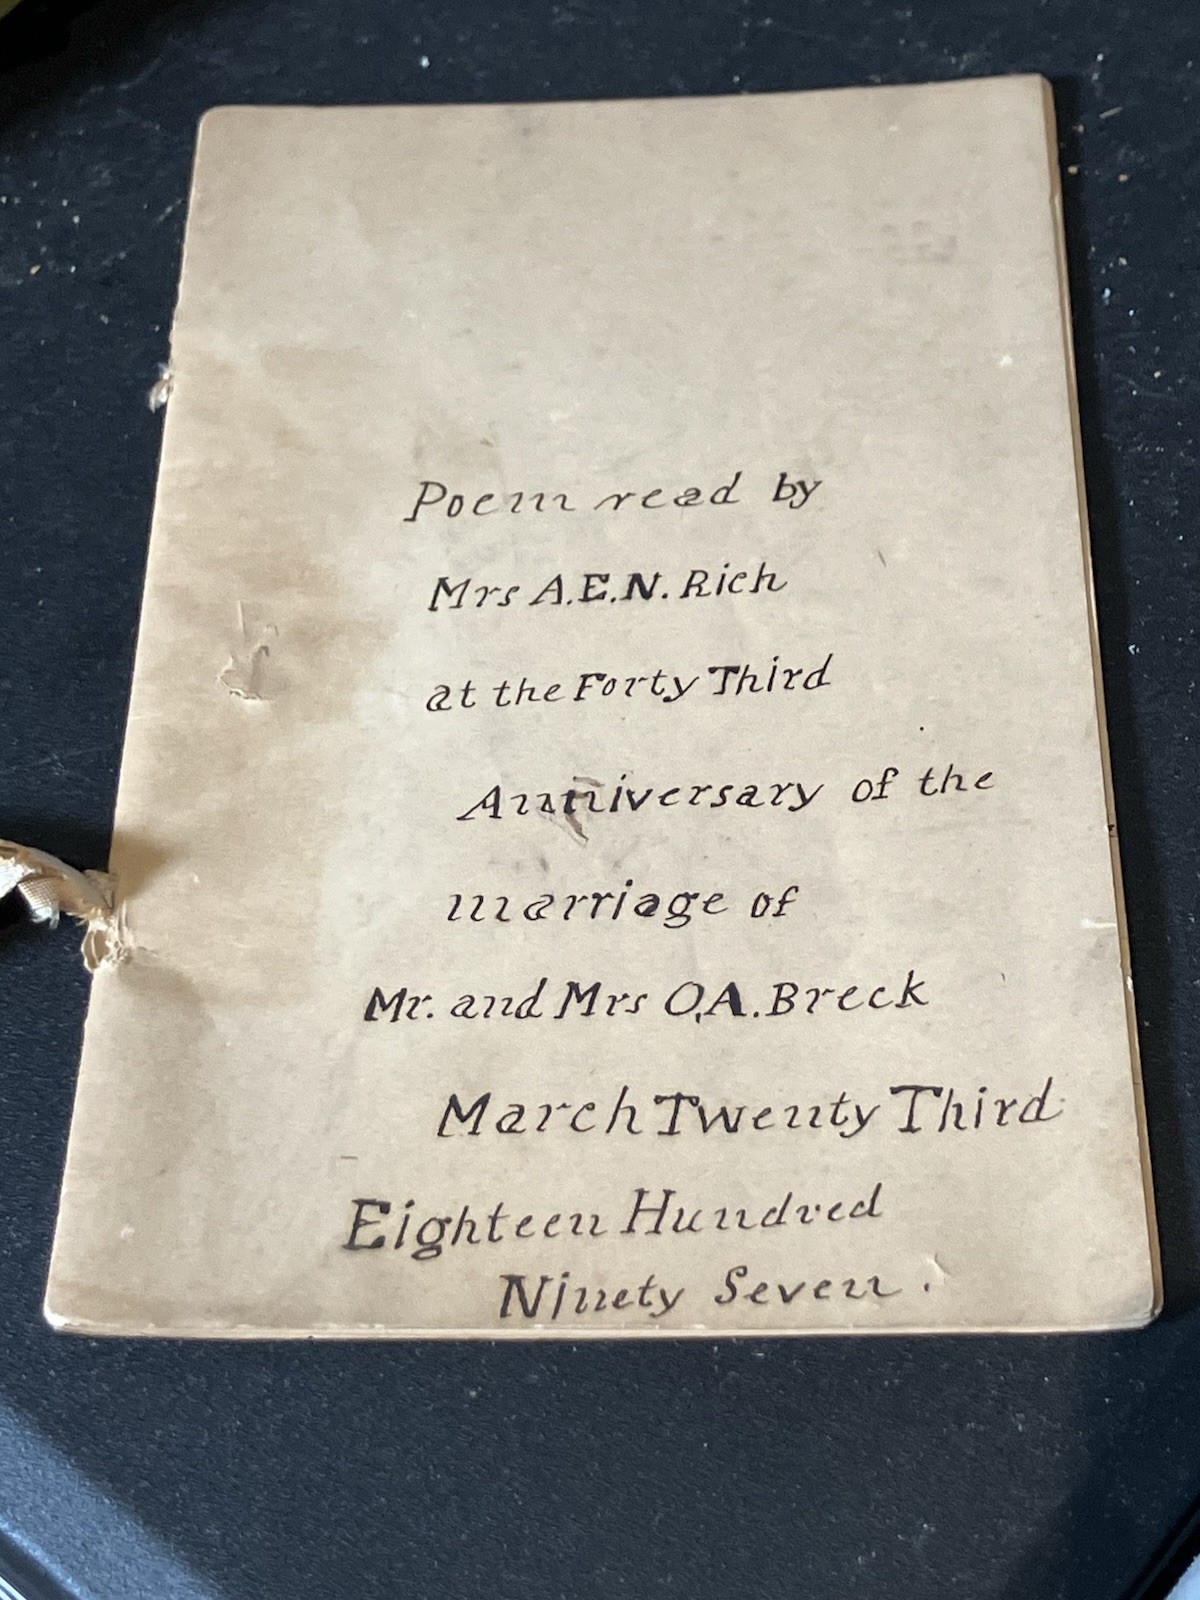 Poem read by
Mrs A.E.N. Rich
at the Forty Third
Anniversary of the
marriage of
Mr. and Mrs O.A. Breck
March Twenty Third
Eighteen Hundred
Ninety Seven.